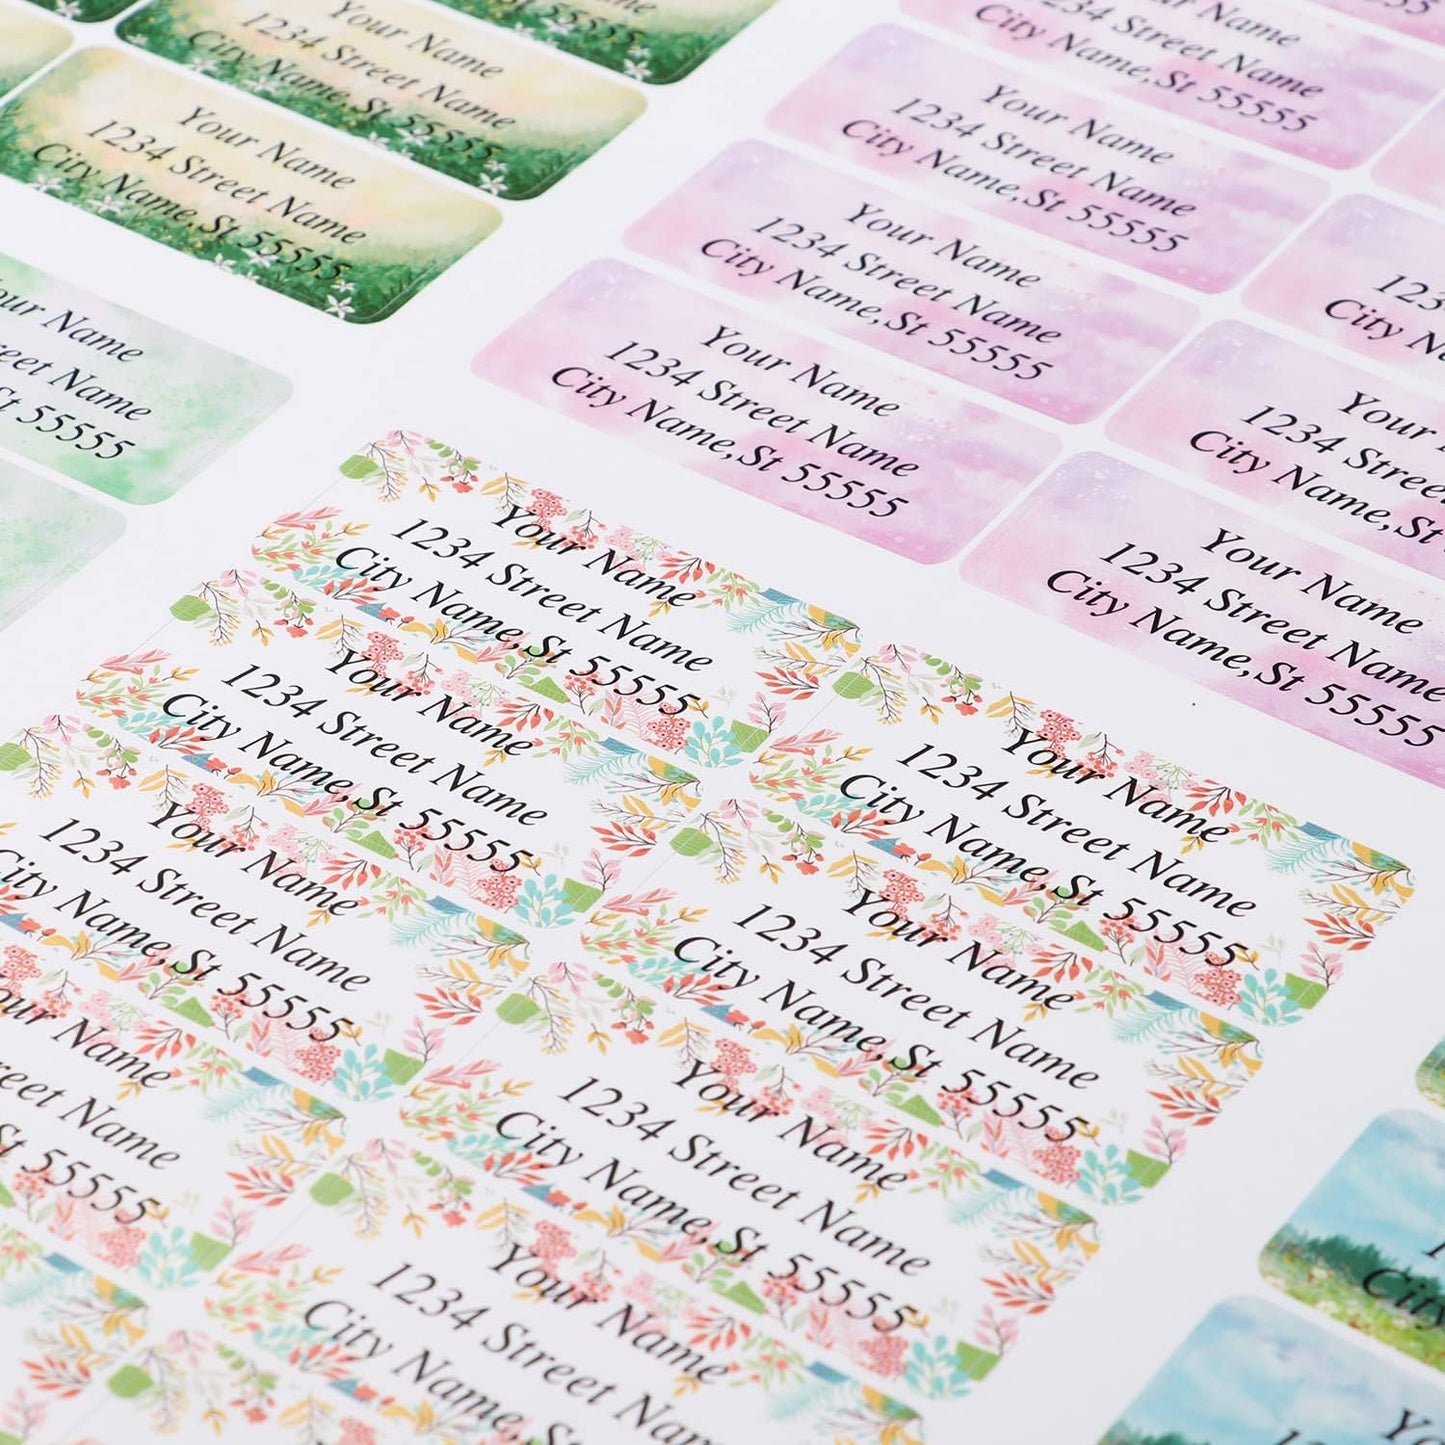 Your Name
1234 Street Name
City Name,St 55555
Your Name
1234 Street Name
City Name,St 55555
Name
Street Name
St 55555
Your Name
1234 Street Name
City Name,St 55555
Your Name
1234 Street Name
City Name,St 55555
Your Name
1234 Street Name
City Name,St 55555
Your Name
1234 Street Name
City Name,St 55555
Your Name
1234 Street Name
City Name,St 55555
Your
1234 Street
City Name,St
Your Name
1234 Street Name
City Name,St 55555
Your Name
1234 Street Name
City Name,St 55555
Your Name
1234 Street Name
City Name,St 55555
Your Name
1234 Street Name
City Name,St 55555
Your Name
Street Name
St 55555
Your Name
1234 Street Name
City Name,St 55555
Your Name
1234 Street Name
City Name,St 55555
Your Name
1234 Street Name
City Name,St 55555
Your Name
1234 Street Name
City Name,St
City